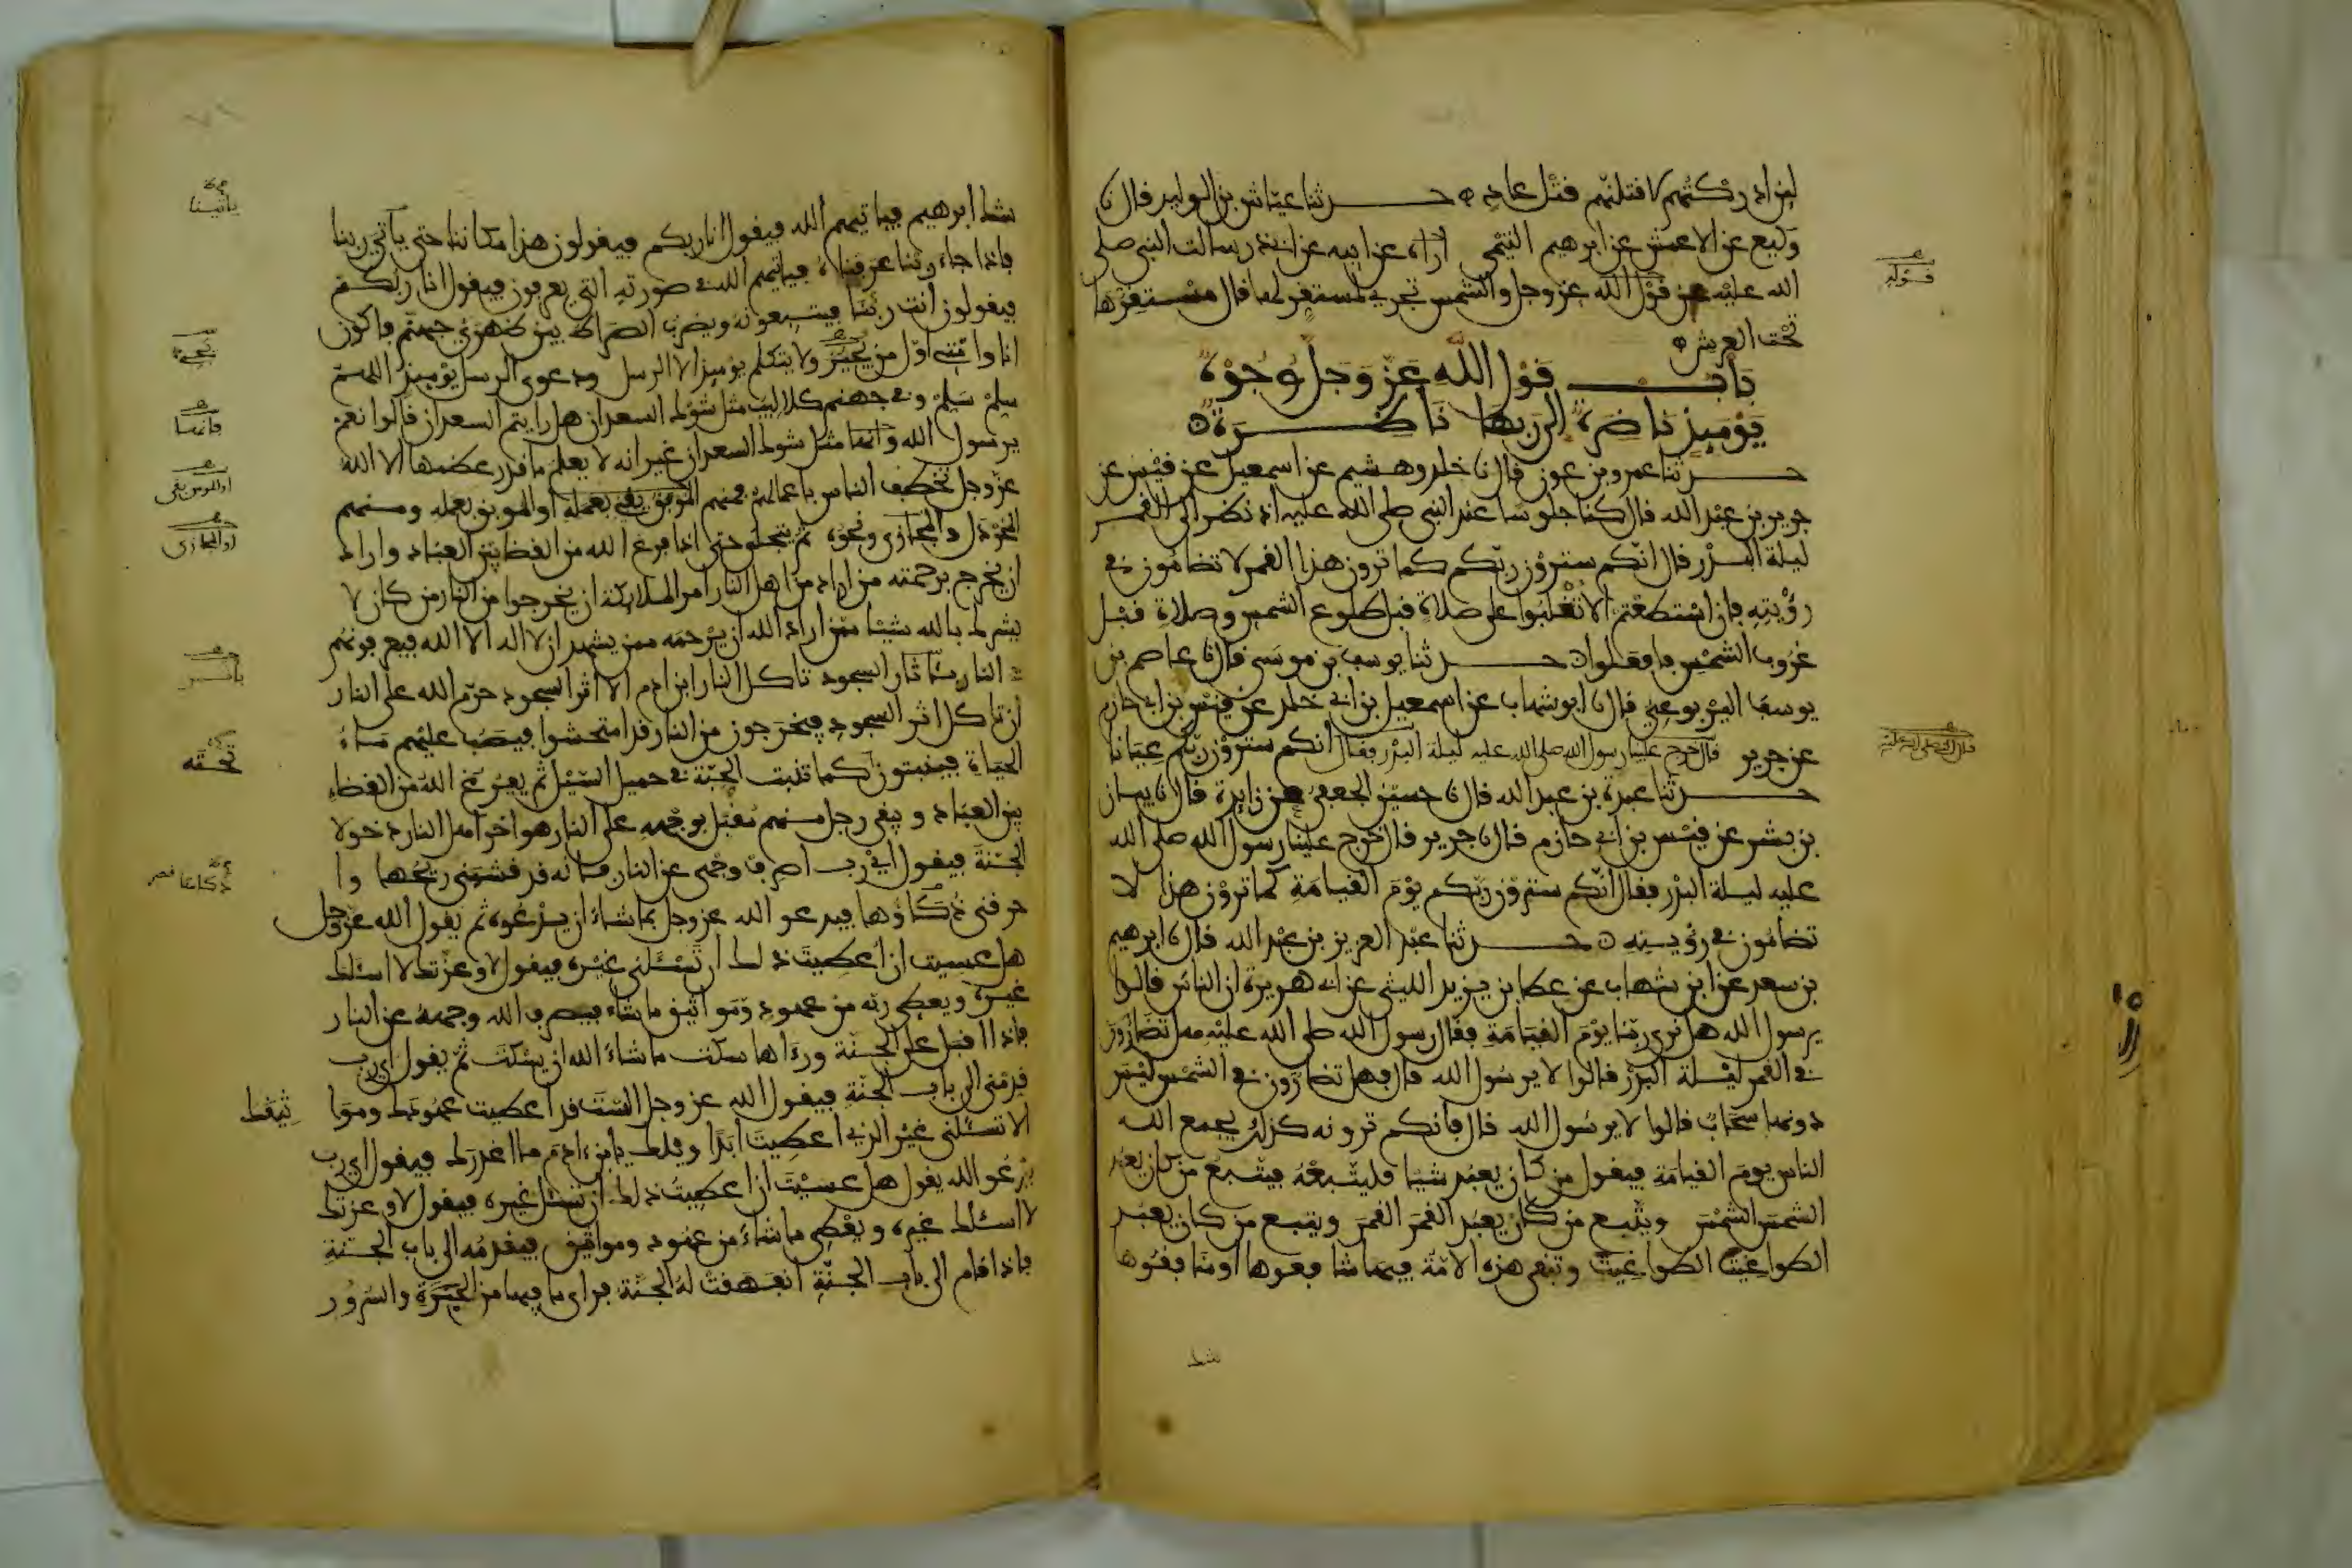 لين ادركتهم لاقتلنهم قتل عاد ه حدثنا عياش بن الوليد قال نا
وكيع عن الاعمش عن ابرهيم التيمي اراه عن ابيه عن ابي ذر سالت النبي صلى
الله عليه عن قول الله عز وجل والشمس تجري لمستقر لها قال مستقرها
تحت العرش ه
باب قول الله عز وجل وجوه
يوميذ ناضرة الى ربها ناظرة ه
حدثنا عمرو بن عون قال نا خلد وهشيم عن اسمعيل عن قيس عن
جرير بن عبد الله قال كنا جلوسا عند النبي صلى الله عليه اذ نظر الى القمر
ليلة البدر قال انكم سترون ربكم كما ترون هذا القمر لا تضامون في
رؤيته فان استطعتم الا تغلبوا على صلاة قبل طلوع الشمس وصلاة قبل
غروب الشمس فافعلوا ه حدثنا يوسف بن موسى قال نا عاصم بن
يوسف اليربوعي قال نا ابو شهاب عن اسمعيل بن ابي خلد عن قيس بن ابي حازم
عن جرير قال خرج علينا رسول الله صلى الله عليه ليلة البدر وقال انكم سترون ربكم عيانا
حدثنا عبدة بن عبد الله قال نا حسين الجعفي عن زايدة قال نا بيان
بن بشر عن قيس بن ابي حازم قال نا جرير قال خرج علينا رسول الله صلى الله
عليه ليلة البدر فقال انكم سترون ربكم يوم القيامة كما ترون هذا لا
تضامون في رؤيته ه حدثنا عبد العزيز بن عبد الله قال نا ابرهيم
بن سعد عن ابن شهاب عن عطا بن يزيد الليثي عن ابي هريرة ان الناس قالوا
يرسول الله هل نرى ربنا يوم القيامة فقال رسول الله صلى الله عليه هل تضارون
في القمر ليلة البدر قالوا لا يرسول الله قال فهل تضارون في الشمس ليس
دونها سحاب قالوا لا يرسول الله قال فانكم ترونه كذلك يجمع الله
الناس يوم القيامة فيقول من كان يعبد شيا فليتبعه فيتبع من كان يعبد
الشمس الشمس ويتبع من كان يعبد القمر القمر ويتبع من كان يعبد
الطواغيت الطواغيت وتبقى هذه الامة فيها شافعوها او منافقوها
شك
قوله
شك ابرهيم فياتيهم الله فيقول انا ربكم فيقولون هذا مكاننا حتى ياتي ربنا
فاذا جاء ربنا عرفناه فياتيهم الله في صورته التي يعرفون فيقول انا ربكم
فيقولون انت ربنا فيتبعونه ويضرب الصراط بين ظهري جهنم فاكون
انا وامتي اول من يجيز ولا يتكلم يوميذ الا الرسل ودعوى الرسل يوميذ اللهم
سلم سلم وفي جهنم كلاليب مثل شوك السعدان هل رايتم السعدان قالوا نعم
يرسول الله قال فانها مثل شوك السعدان غير انه لا يعلم ما قدر عظمها الا الله
عز وجل تخطف الناس باعمالهم فمنهم الموبق بقي بعمله او الموبق بعمله ومنهم
المخردل والمجازى ونحوه ثم يتجلى حتى اذا فرغ الله من القضا بين العباد واراد
ان يخرج برحمته من اراد من اهل النار امر الملايكة ان يخرجوا من النار من كان لا
يشرك بالله شيا ممن اراد الله ان يرحمه ممن يشهد ان لا اله الا الله فيعرفونهم
في النار باثار السجود تاكل النار ابن ادم الا اثر السجود حرم الله على النار
ان تاكل اثر السجود فيخرجون من النار قد امتحشوا فيصب عليهم ماء
الحياة فينبتون كما تنبت الحبة في حميل السيل ثم يفرغ الله من القضاء
بين العباد ويبقى رجل منهم مقبل بوجهه على النار هو اخر اهل النار دخولا
الجنة فيقول اي رب اصرف وجهي عن النار فانه قد قشبني ريحها وا
حرقني ذكاؤها فيدعو الله عز وجل بما شاء ان يدعوه ثم يقول الله عز وجل
هل عسيت ان اعطيت ذلك ان تسئلني غيره فيقول لا وعزتك لا اسئلك
غيره ويعطي ربه من عهود ومواثيق ما شاء فيصرف الله وجهه عن النار
فاذا اقبل على الجنة وراها سكت ما شاء الله ان يسكت ثم يقول اي رب
قدمني الى باب الجنة فيقول الله عز وجل الست قد اعطيت عهودك وموا
ثيقك
الا تسئلني غير الذي اعطيت ابدا ويلك يابن ادم ما اغدرك فيقول اي رب
يدعو الله يقول هل عسيت ان اعطيت ذلك ان تسئل غيره فيقول لا وعزتك
لا اسئلك غيره ويعطي ما شاء من عهود ومواثيق فيقدمه الى باب الجنة
فاذا قام الى باب الجنة انفهقت له الجنة فراى ما فيها من الحبرة والسرور
ياتينا
فانها
او الموبق بقي
او المجازى
باثر
تحته